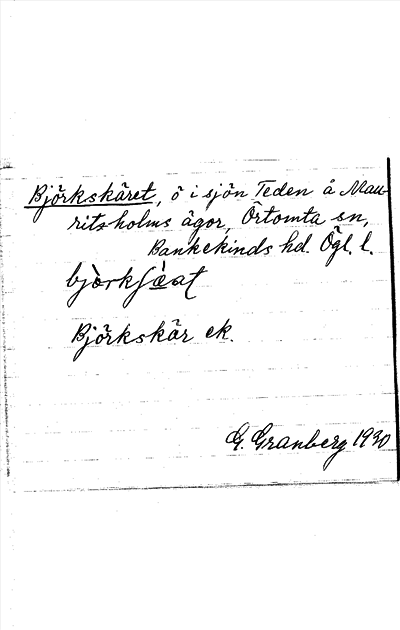 Björkskäret, ö i sjön Teden å Mau-
ritsholms ägor, Örtomta sn,
Bankekinds hd. Ögl. l.
Björkskär ek.
G. Granberg 1930